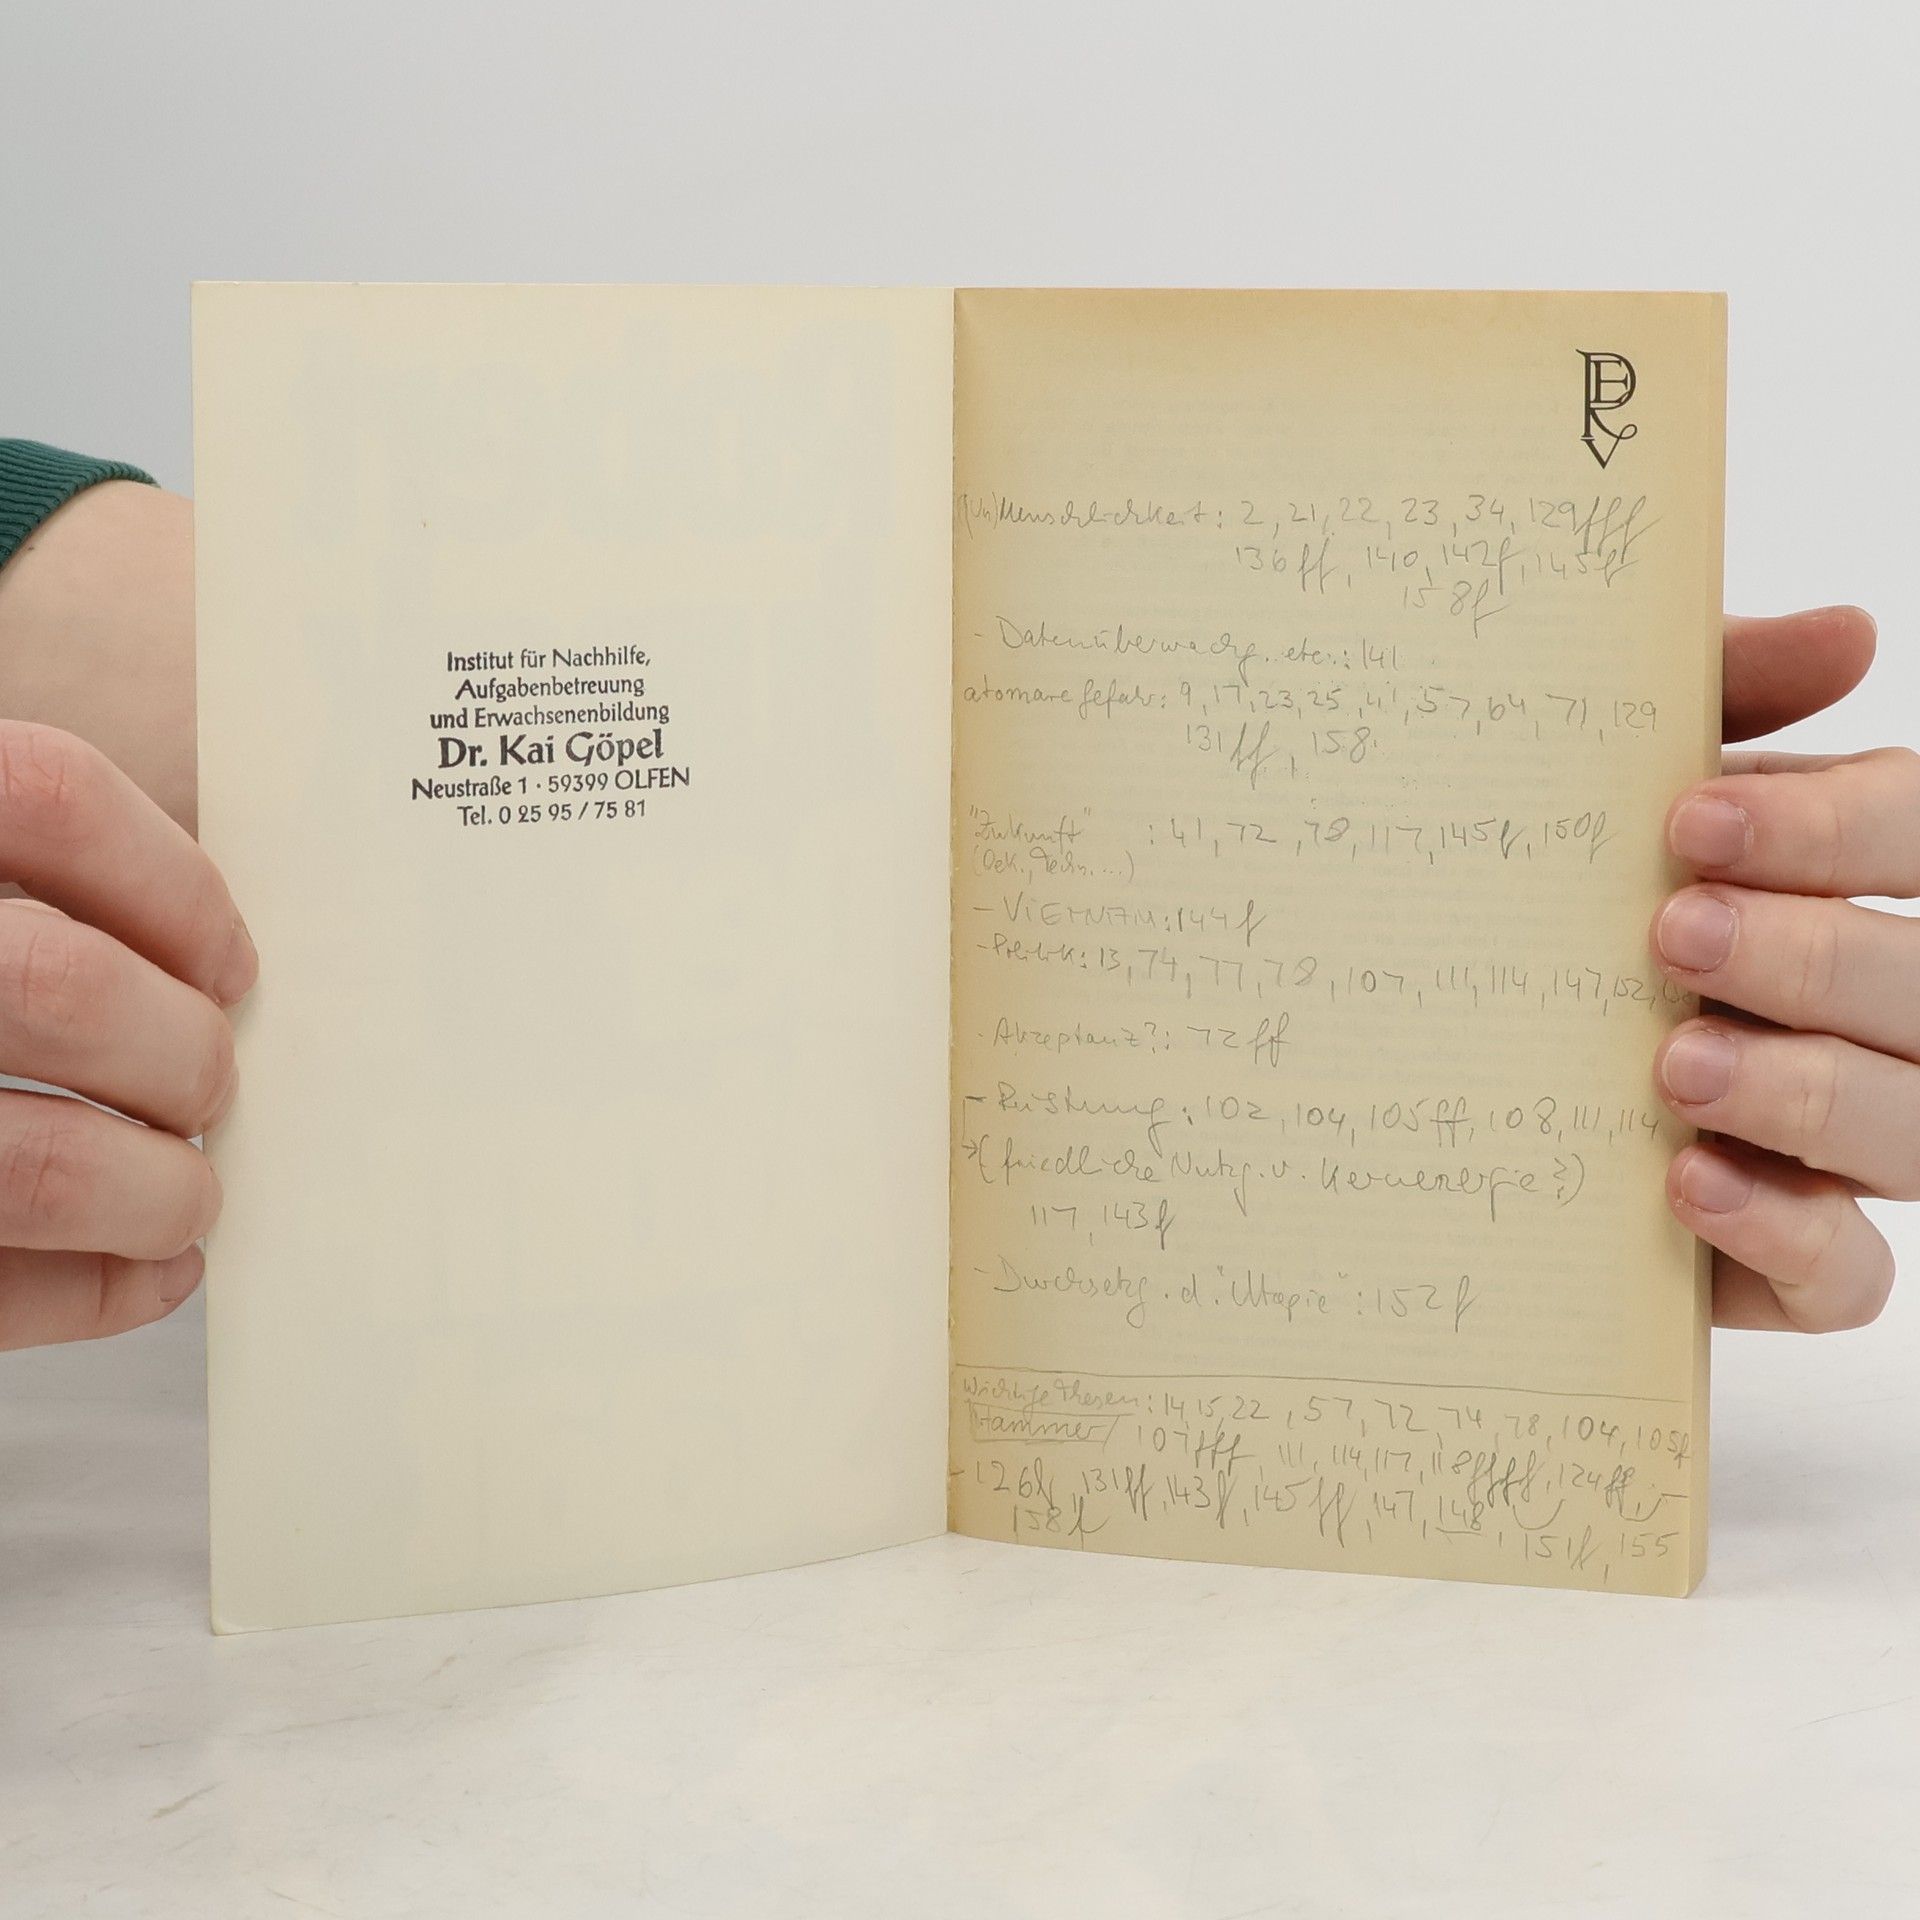 Institut für Nachhilfe,
Aufgabenbetreuung
und Erwachsenenbildung
Dr. Kai Göpel
Neustraße 1 · 59399 OLFEN
Tel. 0 25 95 / 75 81
(Un)Menschlichkeit: 2, 21, 22, 23, 34, 129fff
136ff, 140, 142f, 145f
158f
- Datenüberwachg. etc.: 141
atomare Gefahr: 9, 17, 23, 25, 41, 57, 64, 71, 129
131ff, 158
"Zukunft" : 41, 72, 78, 117, 145f, 150f
(Oek., Techn. ...)
- VIETNAM: 144f
- Politik: 13, 74, 77, 78, 107, 111, 114, 147, 152,
- Akzeptanz?: 72ff
- Rüstung: 102, 104, 105ff, 108, 111, 114
→(friedliche Nutzg. v. Kernenergie?)
117, 143f
- Durchsetzg. d. "Utopie": 152f
Wichtige Thesen: 14, 15, 22, 57, 72, 74, 78, 104, 105f
Hammer 107fff, 111, 114, 117, 118fffff, 124ff, -
- 126f, 131ff, 143f, 145ff, 147, 148, 151f, 155
158f